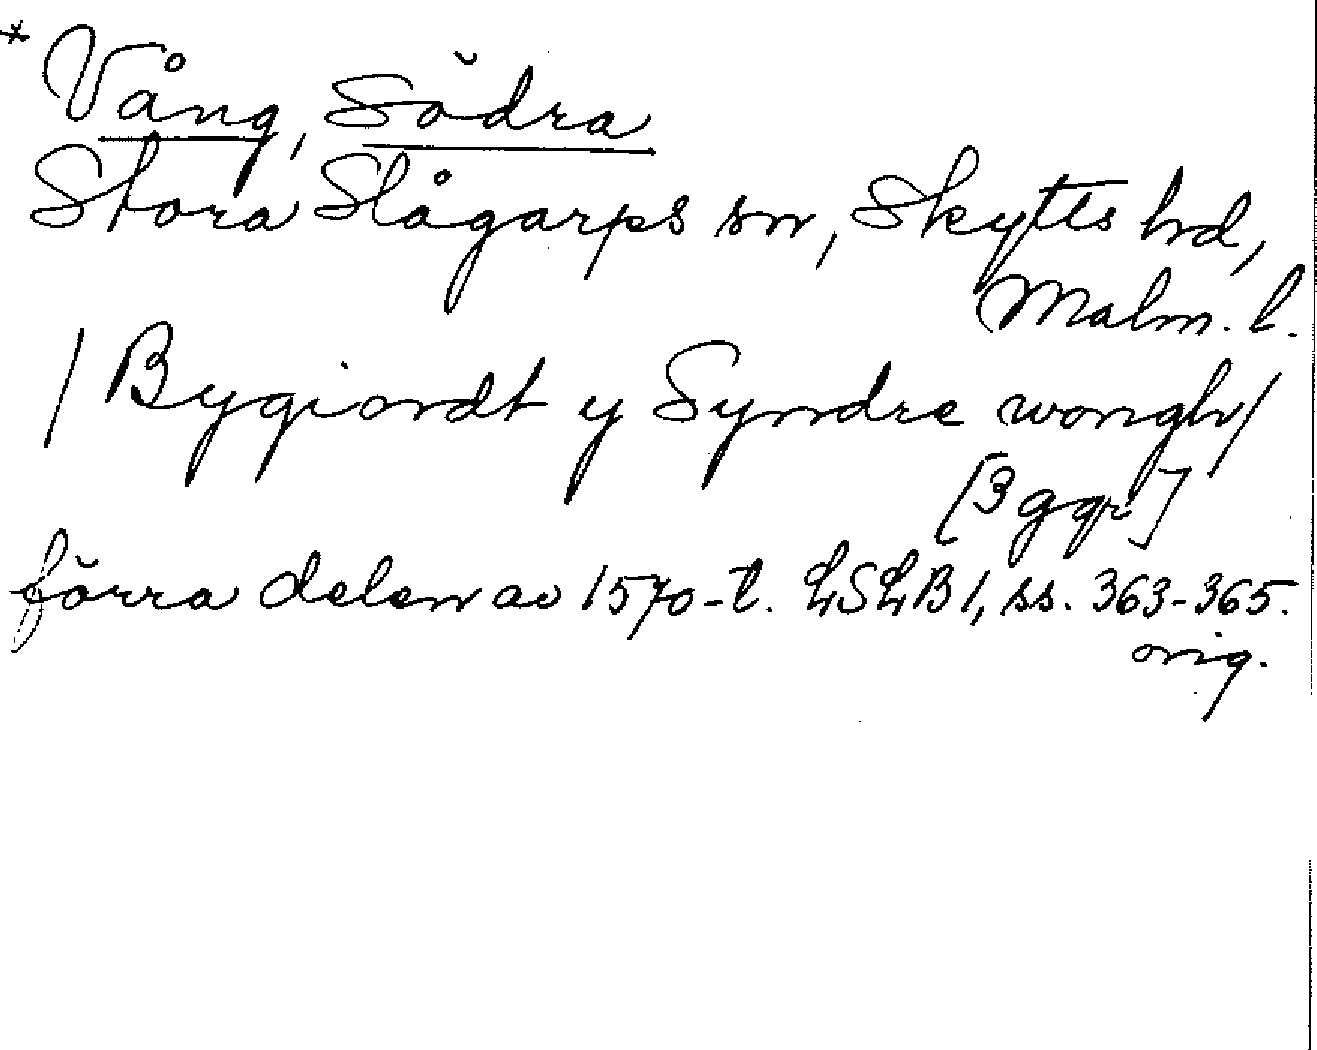 * Vång, Södra
Stora Slågarps sn, Skytts hd,
Malm. l.
/ Bygiordt y Syndre wongh /
[3 ggr]
förra delen av 1570-t. LSLB 1, ss. 363-365.
orig.